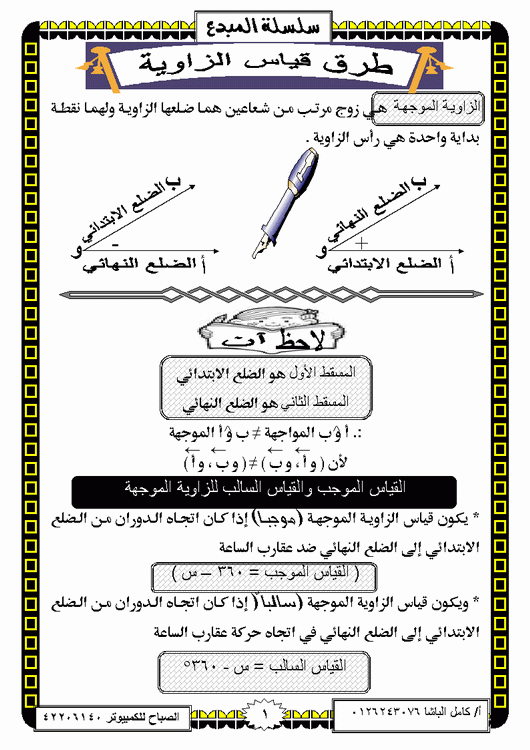 سلسلة المبدع
طرق قياس الزاوية
الزاوية الموجهة هي زوج مرتب من شعاعين هما ضلعها الزاوية ولهما نقطة
بداية واحدة هي رأس الزاوية .
ب الضلع النهائي
+
و
أ الضلع الابتدائي
ب الضلع الابتدائي
-
و
أ الضلع النهائي
لاحظ آت
المسقط الأول هو الضلع الابتدائي
المسقط الثاني هو الضلع النهائي
∴ أ وَ ب المواجهة ≠ ب وَ أ الموجهة
لأن ( وأ ، وب ) ≠ ( وب ، وأ )
القياس الموجب والقياس السالب للزاوية الموجهة
* يكون قياس الزاوية الموجهة (موجباً) إذا كان اتجاه الدوران من الضلع
الابتدائي إلى الضلع النهائي ضد عقارب الساعة
( القياس الموجب = ٣٦٠ – س )
* ويكون قياس الزاوية الموجهة (سالباً) إذا كان اتجاه الدوران من الضلع
الابتدائي إلى الضلع النهائي في اتجاه حركة عقارب الساعة
القياس السالب = س - ٣٦٠°
أ/ كامل الباشا ٠١٢٦٢٤٣٠٧٦
١
الصباح للكمبيوتر ٤٢٢٠٦١٤٠